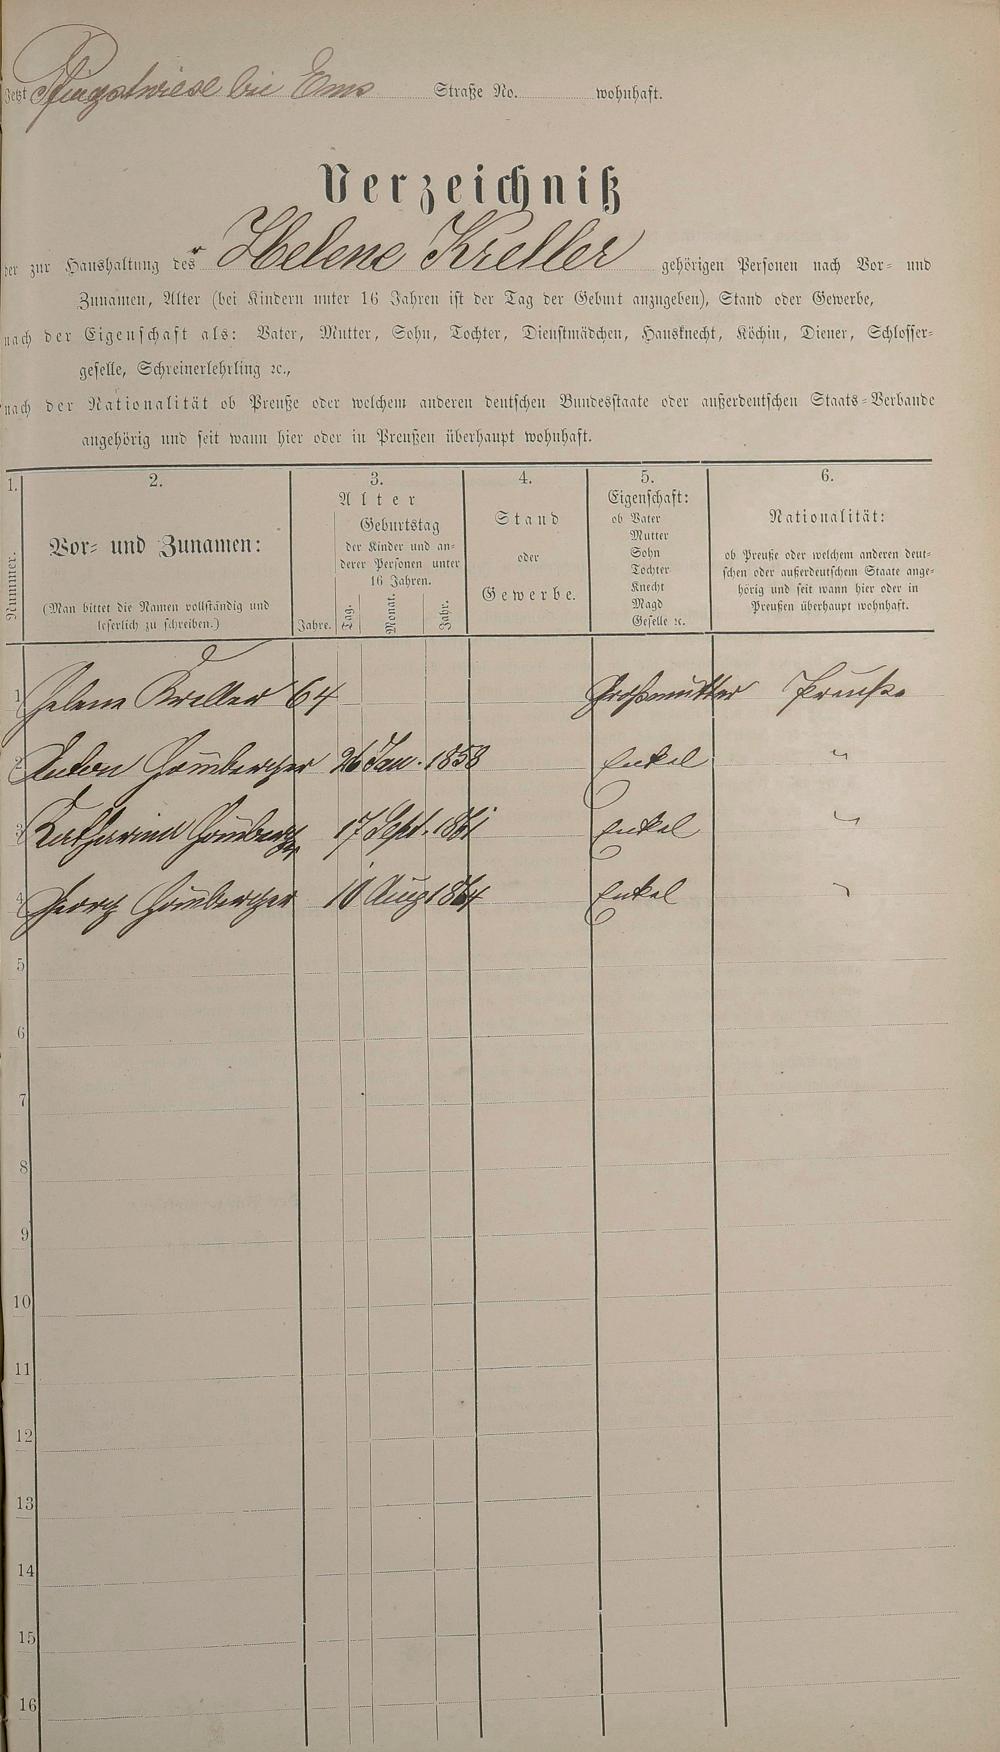 Jetzt Pfingstwiese bei Ems Straße No. wohnhaft.
Verzeichniß
der zur Haushaltung des r Helene Kreller gehörigen Personen nach Vor- und
Zunamen, Alter (bei Kindern unter 16 Jahren ist der Tag der Geburt anzugeben), Stand oder Gewerbe,
nach der Eigenschaft als: Vater, Mutter, Sohn, Tochter, Dienstmädchen, Hausknecht, Köchin, Diener, Schlosser-
geselle, Schreinerlehrling ꝛc.,
nach der Nationalität ob Preuße oder welchem anderen deutschen Bundesstaate oder außerdeutschen Staats-Verbande
angehörig und seit wann hier oder in Preußen überhaupt wohnhaft.
1. 2. 3. 4. 5. 6.
Nummer.
Vor- und Zunamen:
(Man bittet die Namen vollständig und
leserlich zu schreiben.)
Alter
Geburtstag
der Kinder und an-
derer Personen unter
16 Jahren.
Jahre. Tag. Monat. Jahr.
Stand
oder
Gewerbe.
Eigenschaft:
ob Vater
Mutter
Sohn
Tochter
Knecht
Magd
Geselle ꝛc.
Nationalität:
ob Preuße oder welchem anderen deut-
schen oder außerdeutschem Staate ange-
hörig und seit wann hier oder in
Preußen überhaupt wohnhaft.
1 Helene Kreller 64 Großmutter Preuße
2 Anton Homberger 26 Jan. 1858 Enkel "
3 Katharina Homberger 17 Sept. 1861 Enkel "
4 Georg Homberger 10 Aug 1864 Enkel "
5
6
7
8
9
10
11
12
13
14
15
16